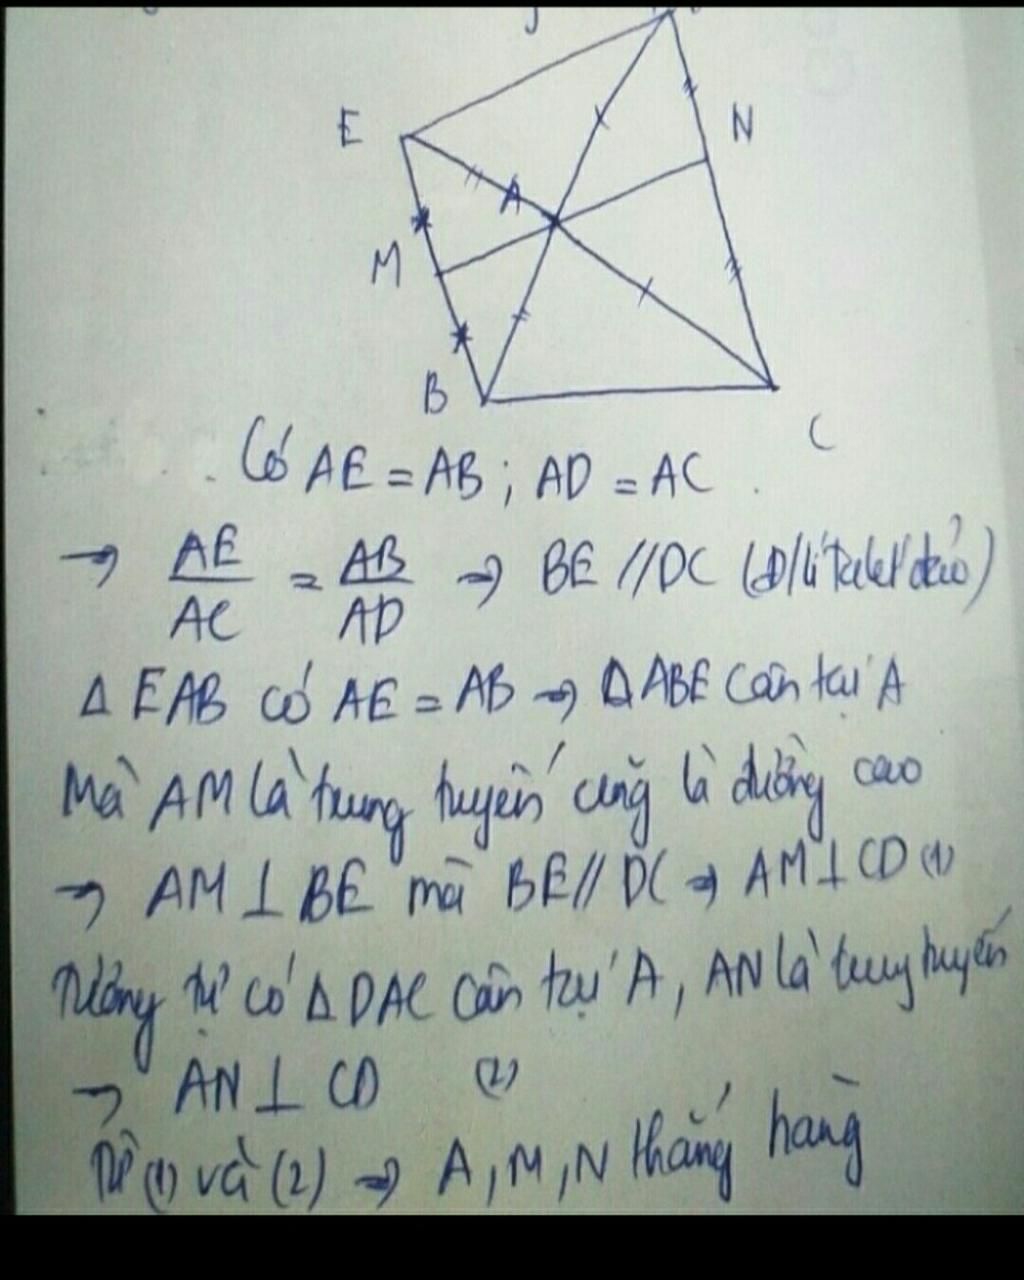 E
N
A
M
B
C
Có AE = AB ; AD = AC
→ AE/AC = AB/AD → BE // DC (Đ/lí Talet đảo)
Δ EAB có AE = AB → Δ ABE cân tại A
Mà AM là trung tuyến cũng là đường cao
→ AM ⊥ BE mà BE // DC → AM ⊥ CD (1)
Tương tự có Δ DAC cân tại A, AN là trung tuyến
→ AN ⊥ CD (2)
Từ (1) và (2) → A, M, N thẳng hàng